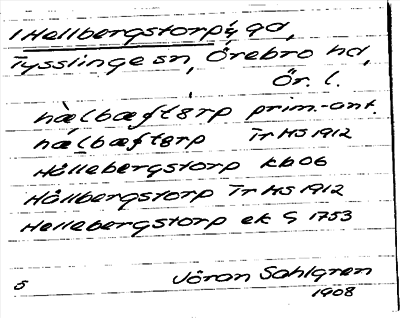 1 Hellbergstorp ¼ gd,
Tysslinge sn, Örebro hd,
Ör. l.
prim.-ant.
Tr HS 1912
Hållebergstorp kb 06
Hållbergstorp Tr HS 1912
Hellebergstorp ek G 1753
5 Jöran Sahlgren
1908